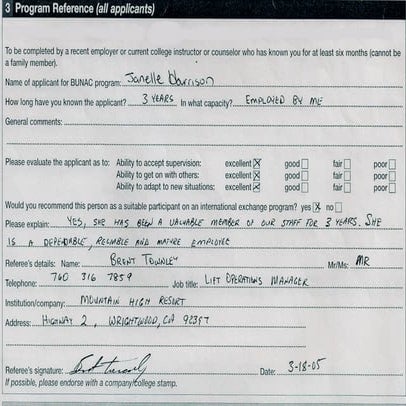 3 Program Reference (all applicants)
To be completed by a recent employer or current college instructor or counselor who has known you for at least six months (cannot be
a family member).
Name of applicant for BUNAC program: Janelle Harrison
How long have you known the applicant? 3 YEARS In what capacity? EMPLOYED BY ME
General comments:
Please evaluate the applicant as to: Ability to accept supervision: excellent good fair poor
Ability to get on with others: excellent good fair poor
Ability to adapt to new situations: excellent good fair poor
Would you recommend this person as a suitable participant on an international exchange program? yes no
Please explain: YES, SHE HAS BEEN A VALUABLE MEMBER OF OUR STAFF FOR 3 YEARS. SHE
IS A DEPENDABLE, RELIABLE AND MATURE EMPLOYEE
Referee's details: Name: BRENT TOWNLEY Mr/Ms: MR
Telephone: 760 316 7859 Job title: LIFT OPERATIONS MANAGER
Institution/company: MOUNTAIN HIGH RESORT
Address: HIGHWAY 2, WRIGHTWOOD, CA 92397
Referee's signature: Date: 3-18-05
If possible, please endorse with a company/college stamp.